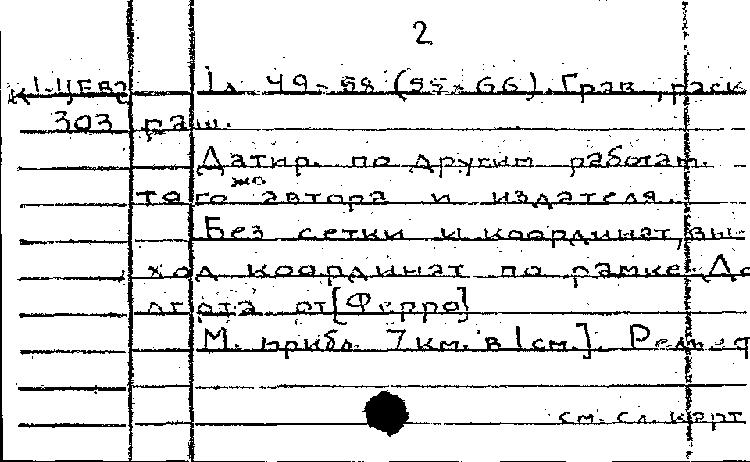 2
К1-ЦЕВ2 1л 49×58 (55×66). Грав., раск
303 раш.
Датир. по другим работам.
того же автора и издателя.
Без сетки и координат, вы-
ход координат по рамке. До
лгота от [Ферро]
М. прибл. 7 км. в 1 см.]. Рельеф
см. сл. карт